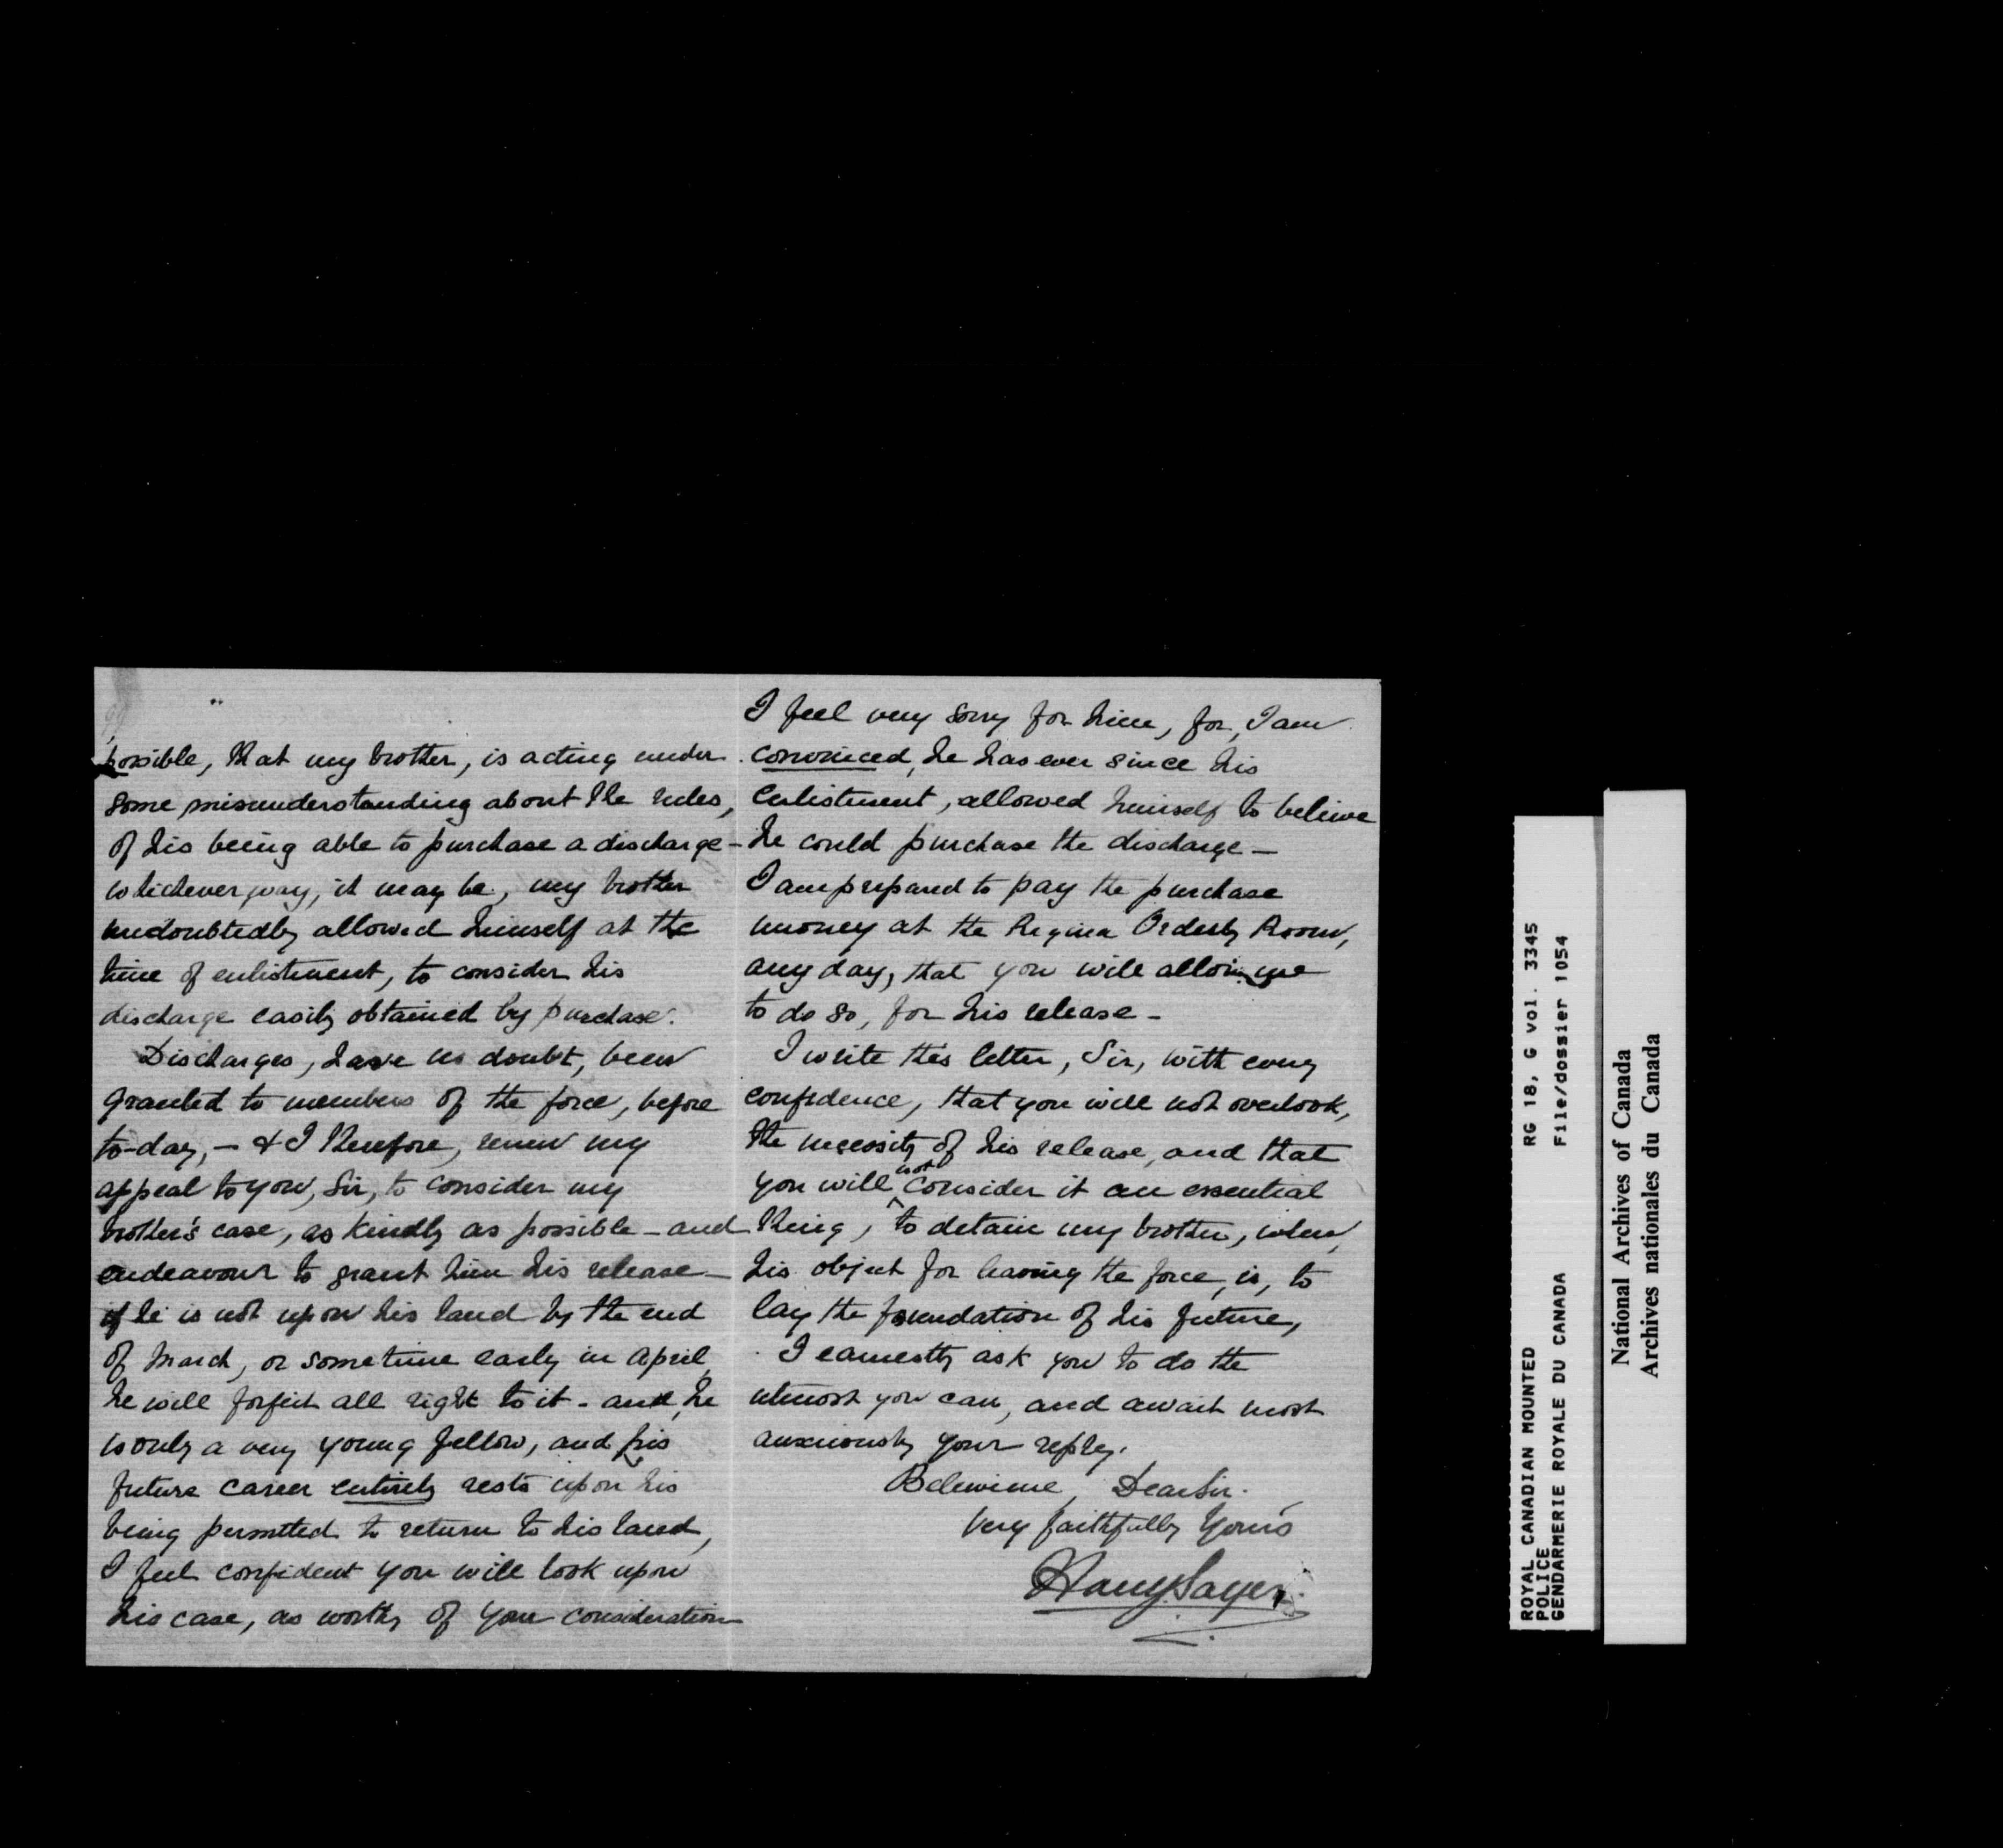 possible, that my brother, is acting under
some misunderstanding about the rules,
of his being able to purchase a discharge –
whichever way, it may be, my brother
undoubtedly allowed himself at the
time of enlistment, to consider his
discharge easily obtained by purchase.
Discharges, have no doubt, been
granted to members of the force, before
to-day, – & I therefore, renew my
appeal to you, Sir, to consider my
brother's case, as kindly as possible – and
endeavour to grant him his release –
if he is not upon his land by the end
of March, or sometime early in April,
he will forfeit all right to it – and, he
is only a very young fellow, and his
future career entirely rests upon his
being permitted to return to his land,
I feel confident you will look upon
his case, as worthy of your consideration
I feel very sorry for him, for, I am
convinced, he has ever since his
enlistment, allowed himself to believe
he could purchase the discharge –
I am prepared to pay the purchase
money at the Regina Orderly Room,
any day, that you will allow me
to do so, for his release –
I write this letter, Sir, with every
confidence, that you will not overlook,
the necessity of his release, and that
you will not consider it an essential
thing, to detain my brother, when,
his object for leaving the force, is, to
lay the foundation of his future,
I earnestly ask you to do the
utmost you can, and await most
anxiously your reply.
Believe me, Dear Sir.
Very faithfully Yours
Harry Sayer.
ROYAL CANADIAN MOUNTED RG 18, G vol. 3345
POLICE
GENDARMERIE ROYALE DU CANADA File/dossier 1054
National Archives of Canada
Archives nationales du Canada